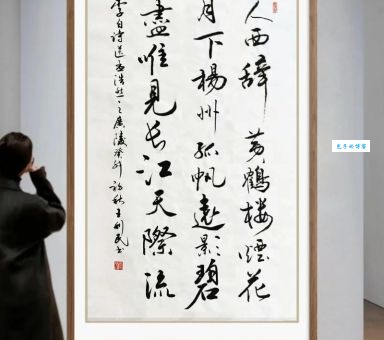 人西辭黄鶴楼煙花
月下楊州孤帆遠影碧
盡唯見長江天際流
李白詩送孟浩然之廣陵癸卯初秋王利民书